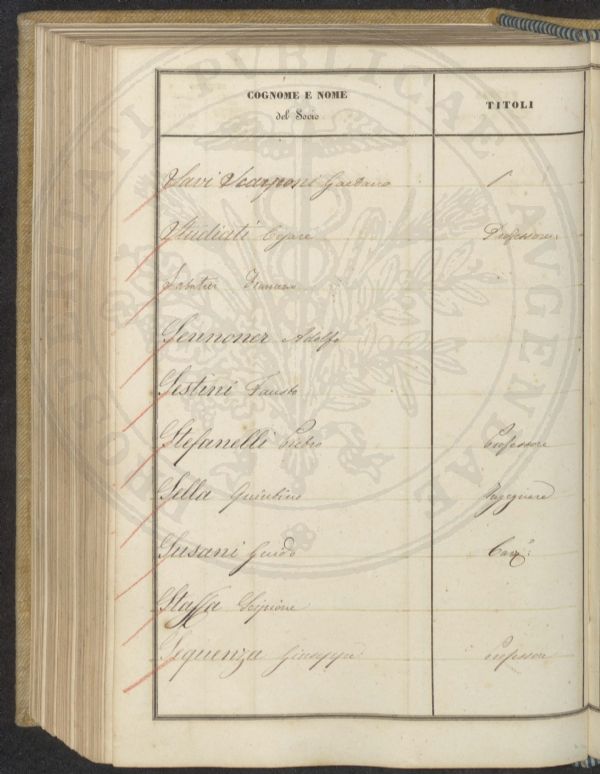 COGNOME E NOME
del Socio
TITOLI
Savi Scarponi Gaetano
Studiati Cesare Professore
Sabatier Francesco
Sennoner Adolfo
Sestini Fausto
Stefanelli Pietro Professore
Sella Quintino Ingegnere
Susani Guido Cav.:
Staffa Scipione
Seguenza Giuseppe Professore
PROSPERITATI PUBLICAE AUGENDAE